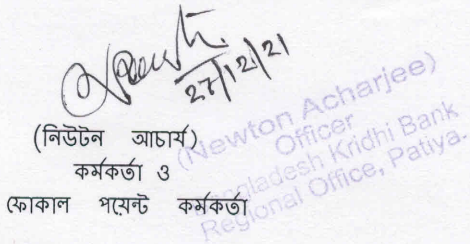 27/12/21
(নিউটন আচার্য)
কর্মকর্তা ও
ফোকাল পয়েন্ট কর্মকর্তা
(Newton Acharjee)
Officer
Bangladesh Kridhi Bank
Regional Office, Patiya.